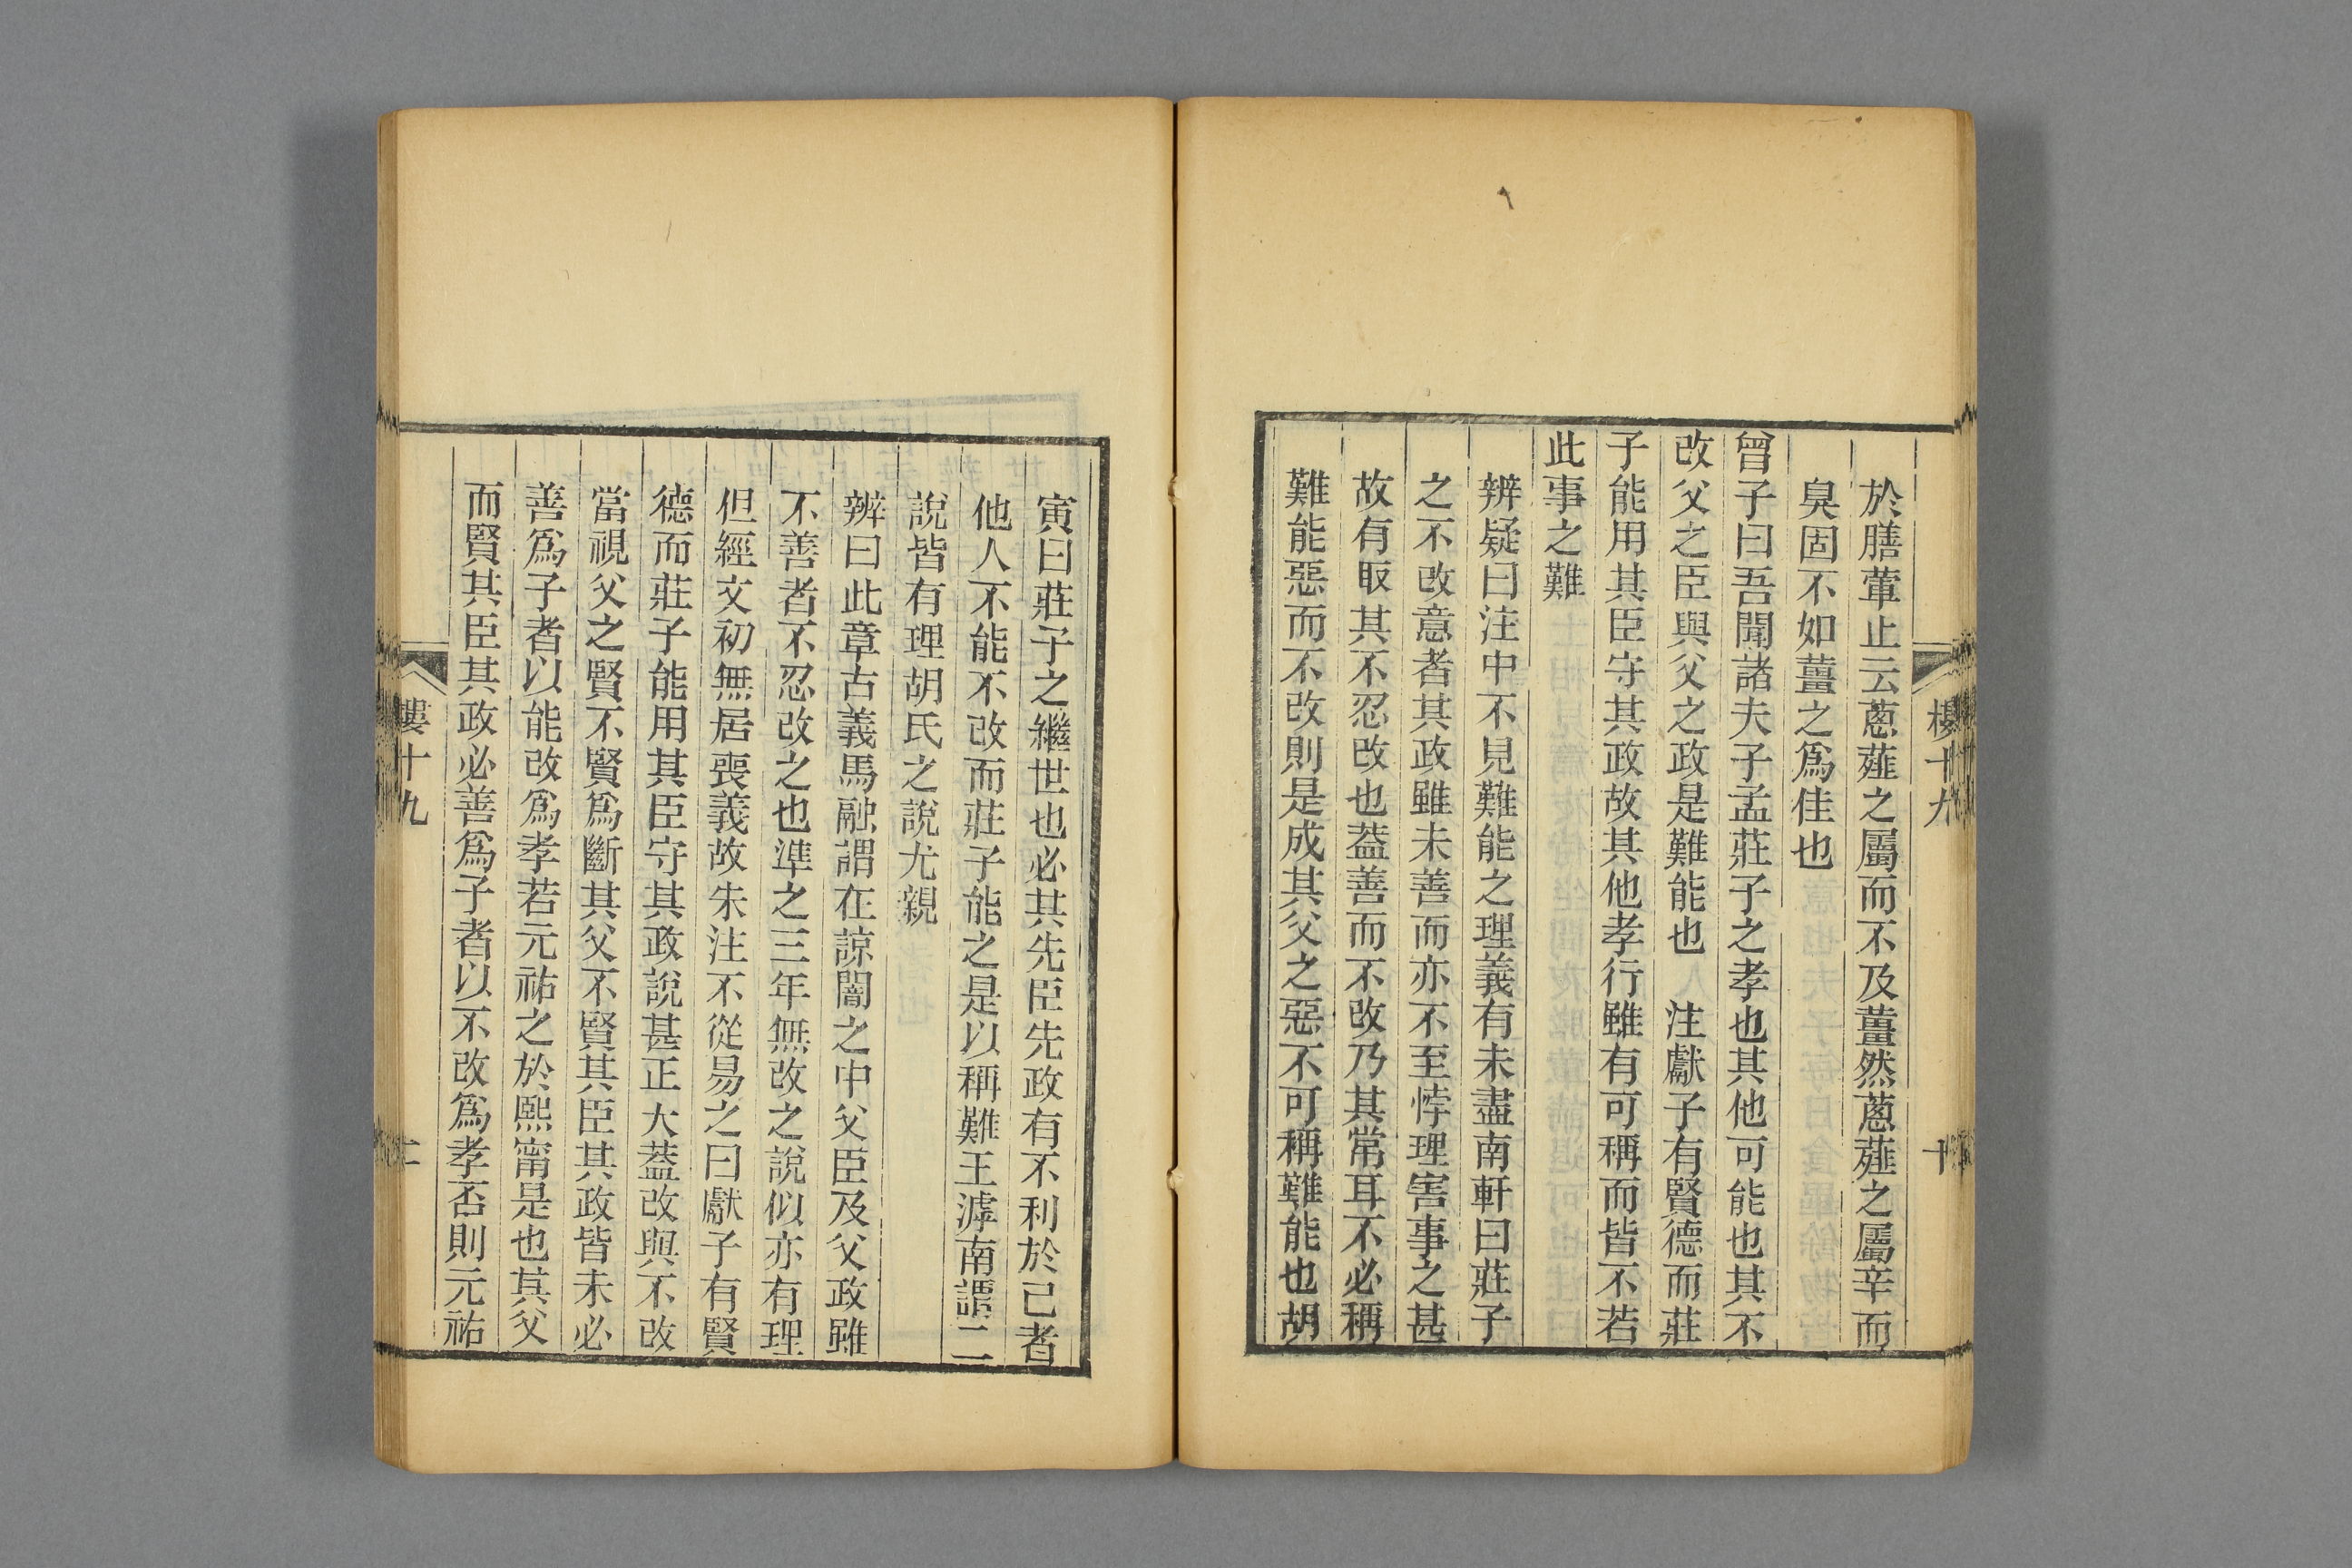 樓十九
十
於膳葷止云蔥薤之屬而不及薑然蔥薤之屬辛而
臭固不如薑之爲佳也
曾子曰吾聞諸夫子孟莊子之孝也其他可能也其不
改父之臣與父之政是難能也　注獻子有賢德而莊
子能用其臣守其政故其他孝行雖有可稱而皆不若
此事之難
辨疑曰注中不見難能之理義有未盡南軒曰莊子
之不改意者其政雖未善而亦不至悖理害事之甚
故有取其不忍改也葢善而不改乃其常耳不必稱
難能惡而不改則是成其父之惡不可稱難能也胡
寅曰莊子之繼世也必其先臣先政有不利於己者
他人不能不改而莊子能之是以稱難王滹南謂二
說皆有理胡氏之說尤親
辨曰此章古義馬融謂在諒闇之中父臣及父政雖
不善者不忍改之也準之三年無改之說似亦有理
但經文初無居喪義故朱注不從易之曰獻子有賢
德而莊子能用其臣守其政說甚正大葢改與不改
當視父之賢不賢爲斷其父不賢其臣其政皆未必
善爲子者以能改爲孝若元祐之於熙甯是也其父
而賢其臣其政必善爲子者以不改爲孝否則元祐
樓十九